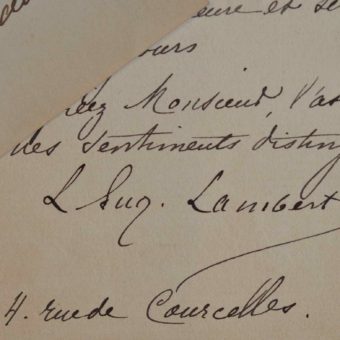 eure et se
ours
éez Monsieur, l'as
mes sentiments disting
L Eug. Lambert
4. rue de Courcelles.